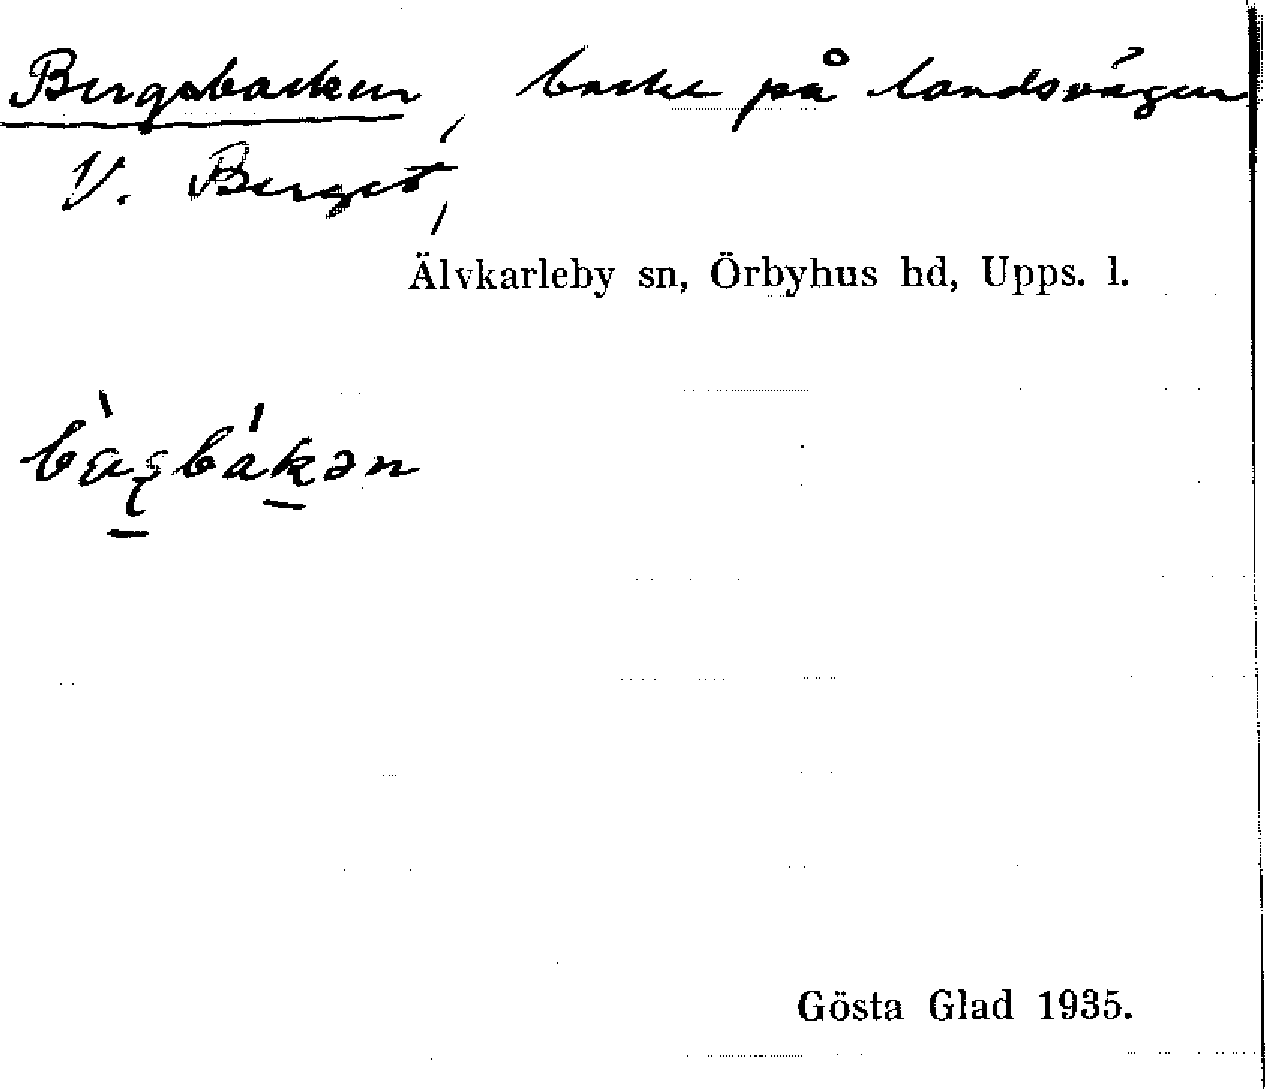 Bergsbacken, backe på landsvägen
V. Berget,
Älvkarleby sn, Örbyhus hd, Upps. l.
Gösta Glad 1935.